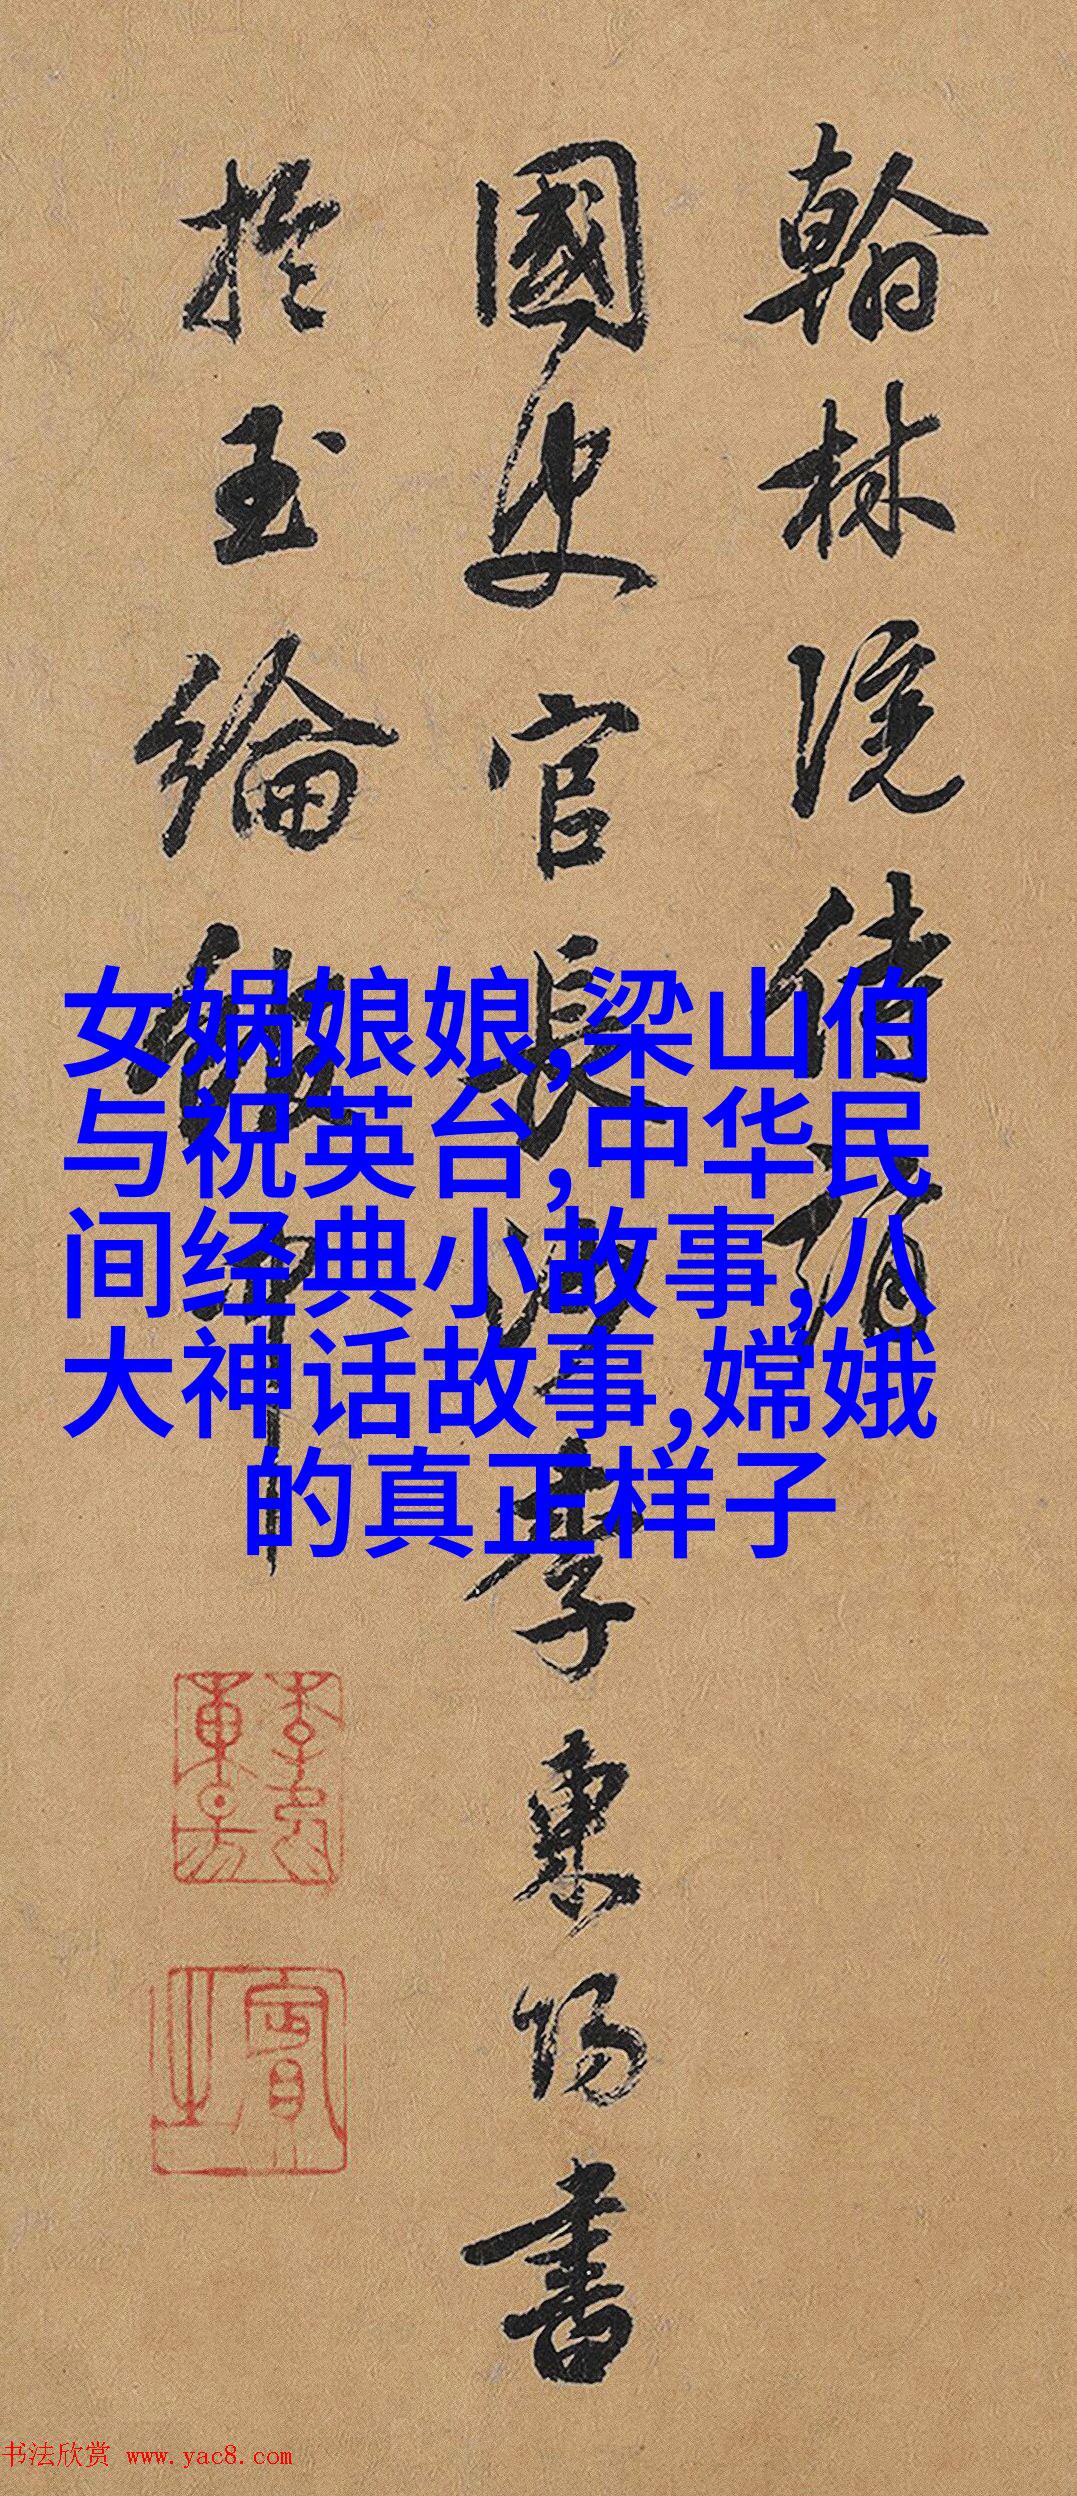 翰林院侍讀
國史官長沙李東陽書
於玉綸
女娲娘娘,梁山伯
与祝英台,中华民
间经典小故事,八
大神话故事,嫦娥
的真正样子
书法欣赏 www.yac8.com